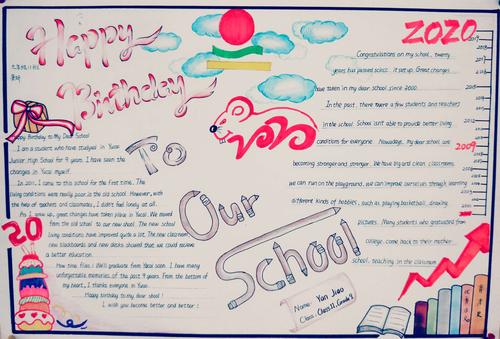 Happy
Birthday
To
Our
School
2020
2009
20
Happy Birthday to My Dear School
I am a student who have studied in Yaoxi
Junior High School for 9 years. I have seen the
changes in Yaoxi myself.
In 2011, I came to this school for the first time. The
living conditions were really poor in the old school. However, with
the help of teachers and classmates, I didn't feel lonely at all.
As I grew up, great changes have taken place in Yaoxi. We moved
from the old school to our new school. The new school
living conditions have improved quite a lot. The new classroom
new blackboards and new desks showed that we could receive
a better education.
How time flies! We'll graduate from Yaoxi soon. I have many
unforgettable memories of the past 9 years. From the bottom of
my heart, I thanks everyone in Yaoxi.
Happy birthday to my dear shool!
I wish you become better and better!
Congratulations on my school, twenty
years has passed since it set up. Great changes
have taken in my dear school since 2000.
In the past, there were a few students and teachers
in the school. School isn't able to provide better living
conditions for everyone. Nowadays, my dear school are
becoming stronger and stronger. We have big and clean classrooms,
we can run on the playground, we can improve ourselves through learning
different kinds of hobbies, such as playing basketball, drawing
pictures. Many students who graduated from
college, come back to their mother
school, teaching in the classroom.
Name: Yan Jiao
Class: Class11, Grade9